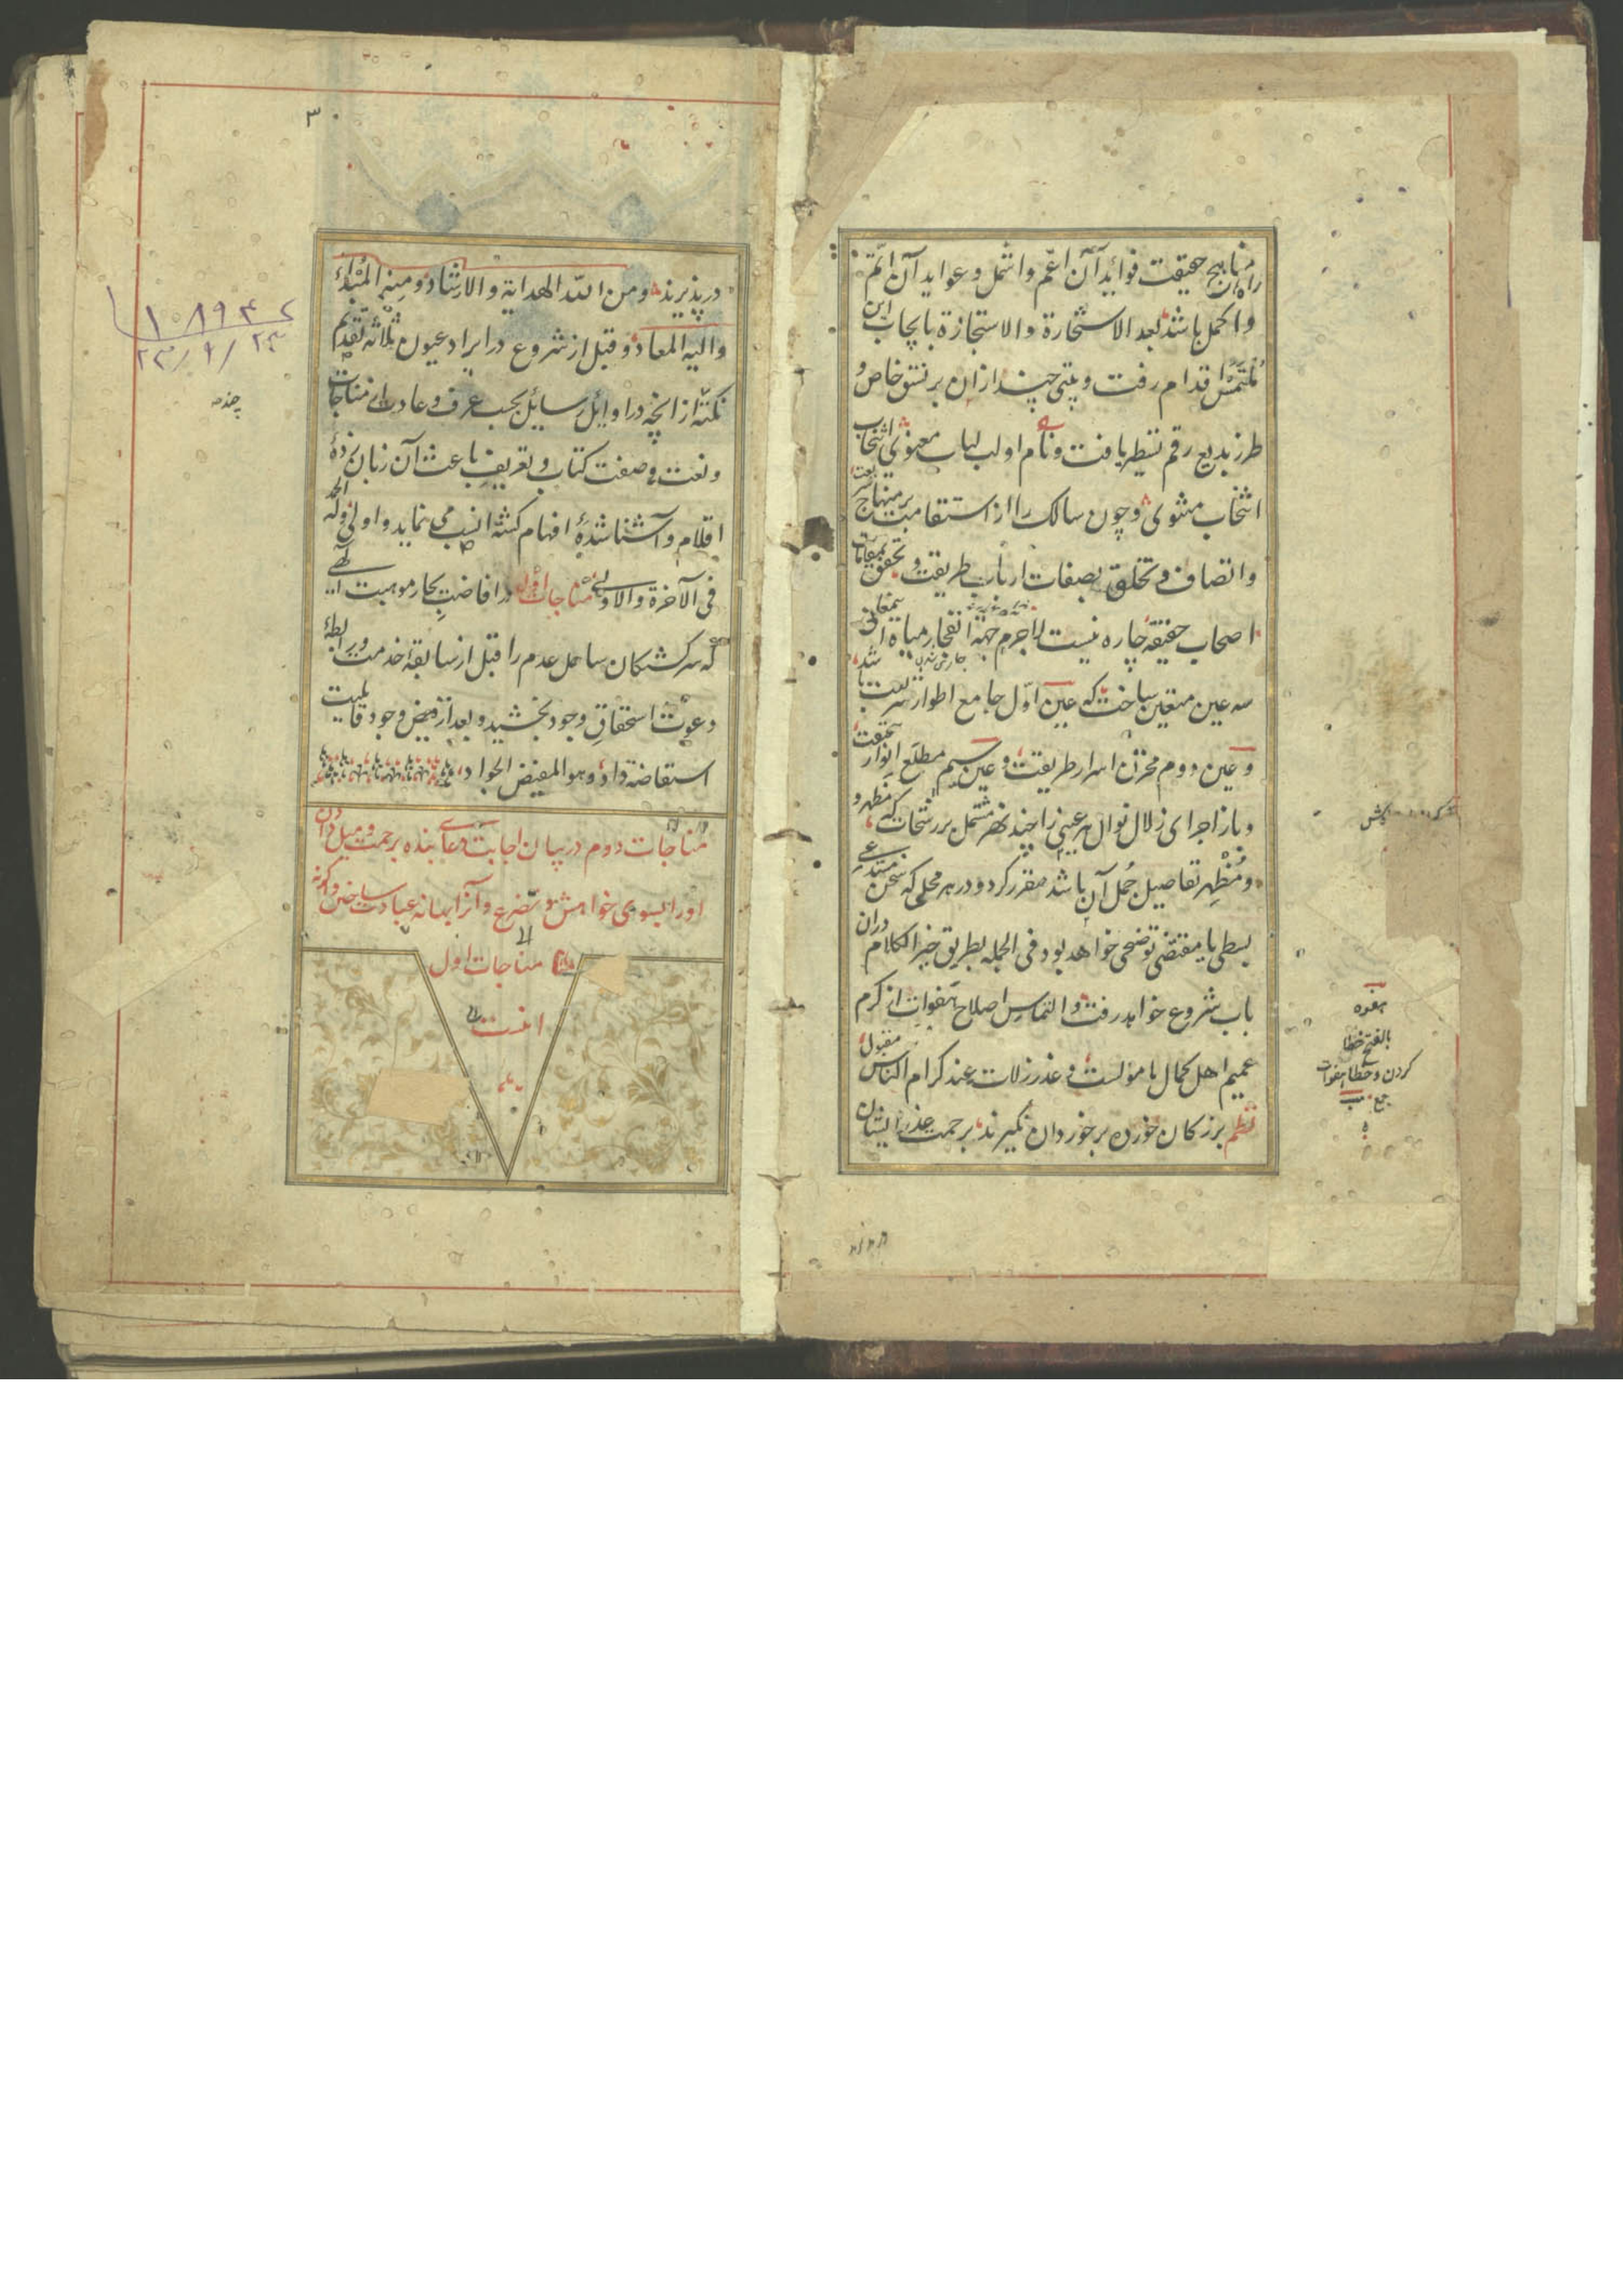 مناهج حقیقت فوائد آن اعم و اشمل و عواید آن اتم
و اکمل باشد بعد الاستخارة والاستجازة بایجاب این
ملتمس اقدام رفت و بیتی چند از ان بر نسق خاص و
طرز بدیع رقم تسطیر یافت و نام او لب لباب معنوی انتخاب
انتخاب مثنوی و چون سالک را از استقامت بر منهاج شریعت
و اتصاف و تخلق بصفات ارباب طریقت و تحقق بمقامات
اصحاب حقیقة چاره نیست لاجرم جهة انفجار میاه این معانی
سه عین متعین ساخت که عین اول جامع اطوار شریعت باشد
و عین دوم مخزن اسرار طریقت و عین سیم مطلع انوار حقیقت
و باز اجرای زلال نوال هر عینی را چند نهر مشتمل بر رشحات که مظهر و
و مظهر تفاصیل جمل آن باشد مقرر کرد و در هر محلی که سخن مستدعی
بسطی یا مقتضی توضحی خواهد بود فی الجمله بطریق خیر الکلام دران
باب شروع خواهد رفت و التماس اصلاح هفوات از کرم
عمیم اهل کمال مامولست و عذر زلات عند کرام الناس مقبول
نظم بزرکان خورده بر خوردان نکیرند برحمت عذر ایشان
هفوه
بالفتح خطا
کردن و خطا هفوات
جمع
۳
در پذیرند ومن الله الهدایة والارشاد ومنه المبداء
والیه المعاد و قبل از شروع در ایراد عیون ثلاثه تقدیم
نکته از انچه در اوایل رسایل بحسب عرف و عادت از مناجات
و نعت و صفت کتاب و تعریف باعث آن زبان زدهٔ
اقلام و آشنا شدهٔ افهام کشته انسب می نماید و اولی وله الحمد
فی الآخرة والاولی مناجات اول در افاضت بحار موهبت الهی
که سرکشتکان ساحل عدم را قبل از سابقهٔ خدمت و رابطهٔ
دعوت استحقاق وجود بخشید و بعد از فیض وجود قابلیت
استفاضه داد و هو المفیض الجواد
مناجات دوم در بیان اجابت دعا بنده برحمت و میل دادن
اورا بسوی خواهش و تضرع و آنرا بهانه عبادت ساختن و کرنه
مناجات اول